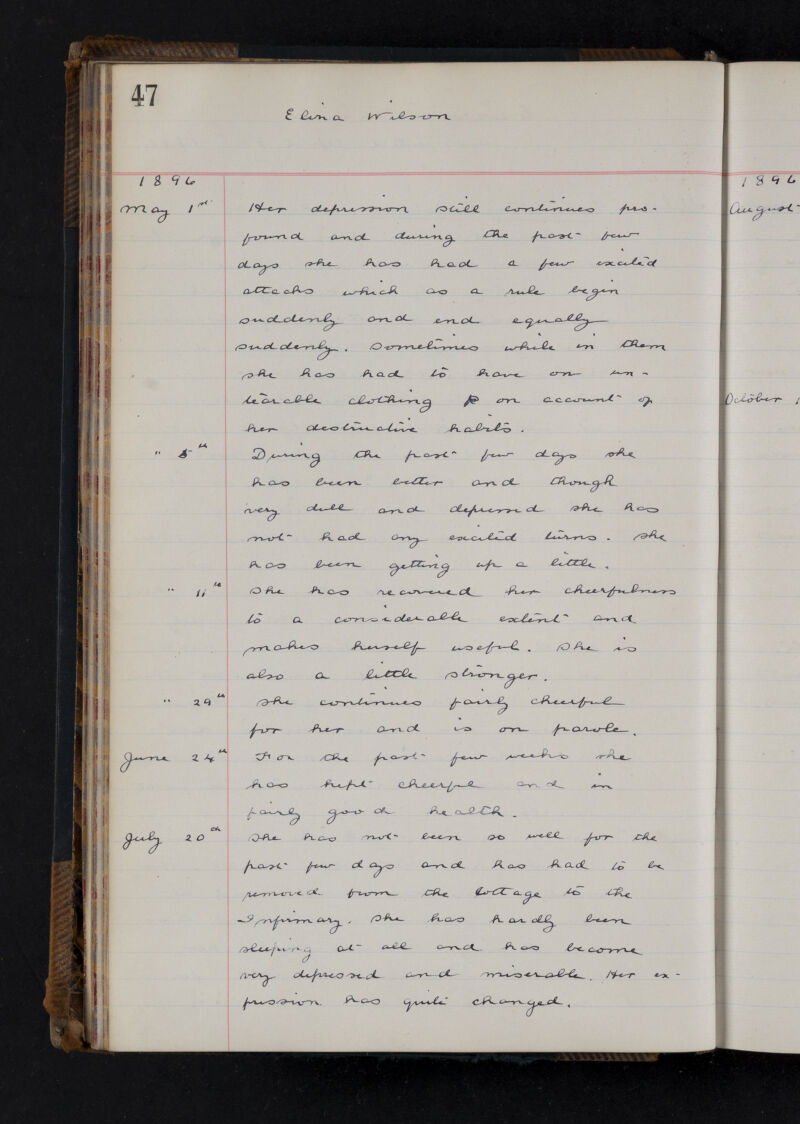 47
Elina Wilson
1896
May 1st Her depression still continues pro-
found and during the past few
days she has had a few excited
attacks which as a rule begin
suddenly and end equally
suddenly. Sometimes while in them
she has had to have on un-
tearable clothing on account of
her destructive habits.
" 5th During the past few days she
has been better and though
very dull and depressed she has
not had any excited turns. She
has been getting up a little.
" 11th She has recovered her cheerfulness
to a considerable extent and
makes herself useful. She is
also a little stronger.
" 29th She continues fairly cheerful
for her and is on parole.
June 24th For the past few weeks she
has kept cheerful and in
fairly good health.
July 20th She has not been so well for the
past few days and has had to be
removed from the Cottage to the
Infirmary. She has hardly been
sleeping at all and has become
very depressed and miserable. Her ex-
pression has quite changed.
1896
August
October